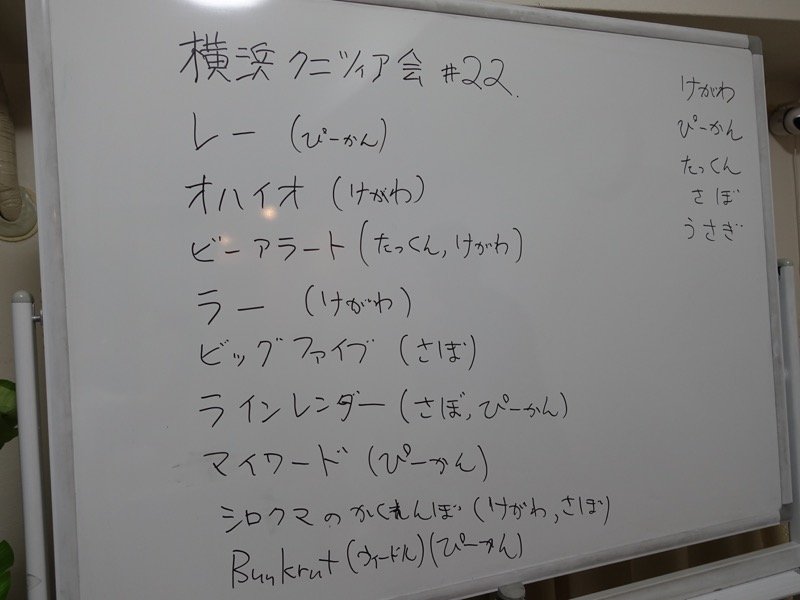 横浜クニツィア会 #22.
レー (ぴーかん)
オハイオ (けがわ)
ビーアラート (たっくん, けがわ)
ラー (けがわ)
ビッグファイブ (さぼ)
ラインレンダー (さぼ, ぴーかん)
マイワード (ぴーかん)
シロクマのかくれんぼ (けがわ, さぼ)
(ぴーかん)
けがわ
ぴーかん
たっくん
さぼ
うさぎ